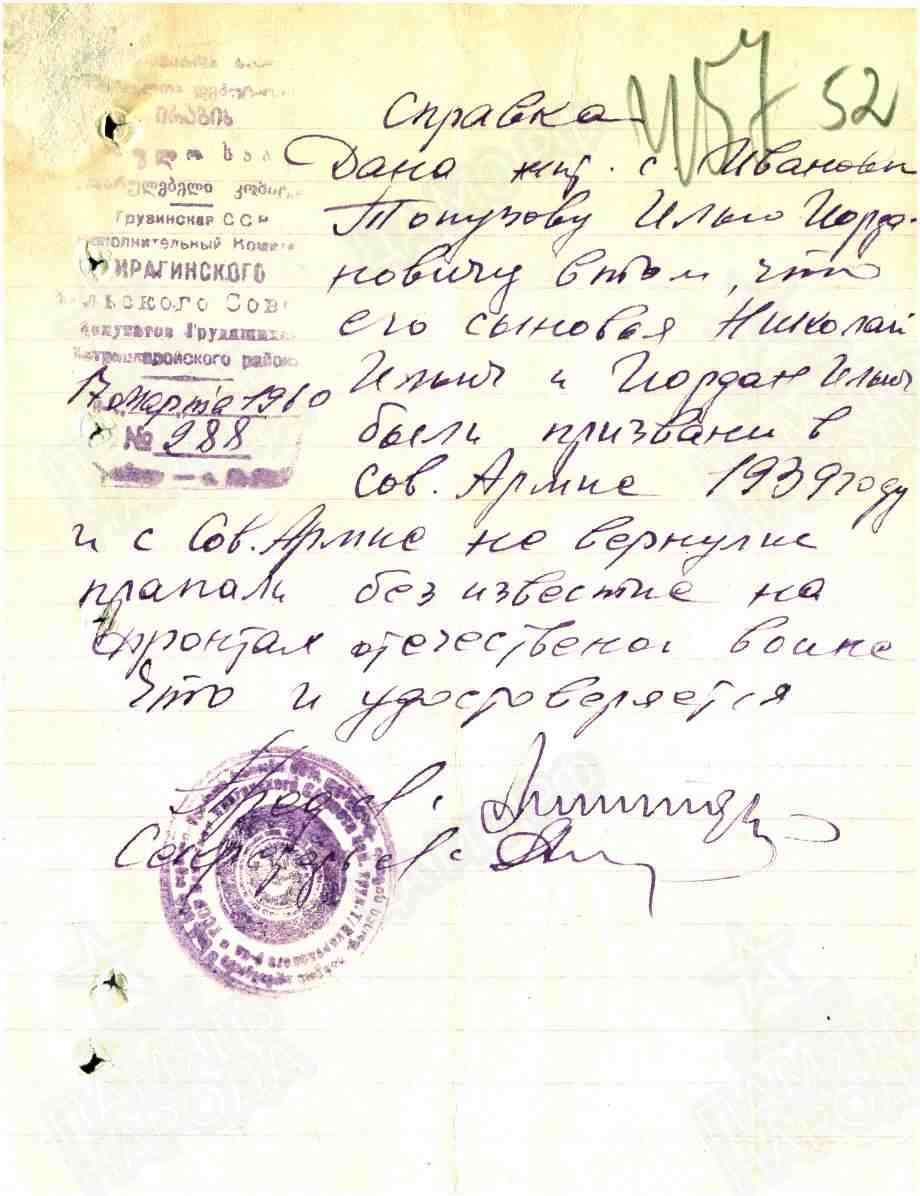 457 52
ირაგის
Грузинская ССР
Исполнительный Комите
ИРАГИНСКОГО
льского Сове
Депутатов Трудящихся
Тетрицкаройского района
17 марта 1960
№ 288
Справка
Дана жит. с. Ивановки
Топузову Илью Иорда
новичу втом, что
его сыновья Николай
Ильич и Иордан Ильич
были призвани в
Сов. Армие 1939 году
и с Сов. Армие не вернулис
прапали без известие на
фронтах отечественой воине
Что и удостоверяется
Предсов.
Секр.